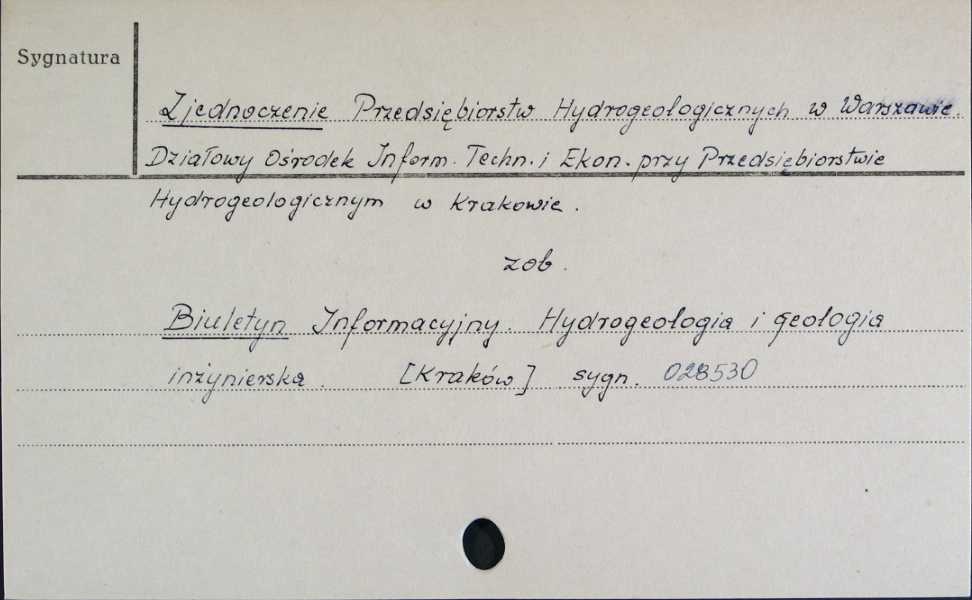 Sygnatura
Zjednoczenie Przedsiębiorstw Hydrogeologicznych w Warszawie.
Działowy Ośrodek Inform. Techn. i Ekon. przy Przedsiębiorstwie
Hydrogeologicznym w Krakowie.
zob.
Biuletyn Informacyjny. Hydrogeologia i geologia
inżynierska. [Kraków] sygn. 028530